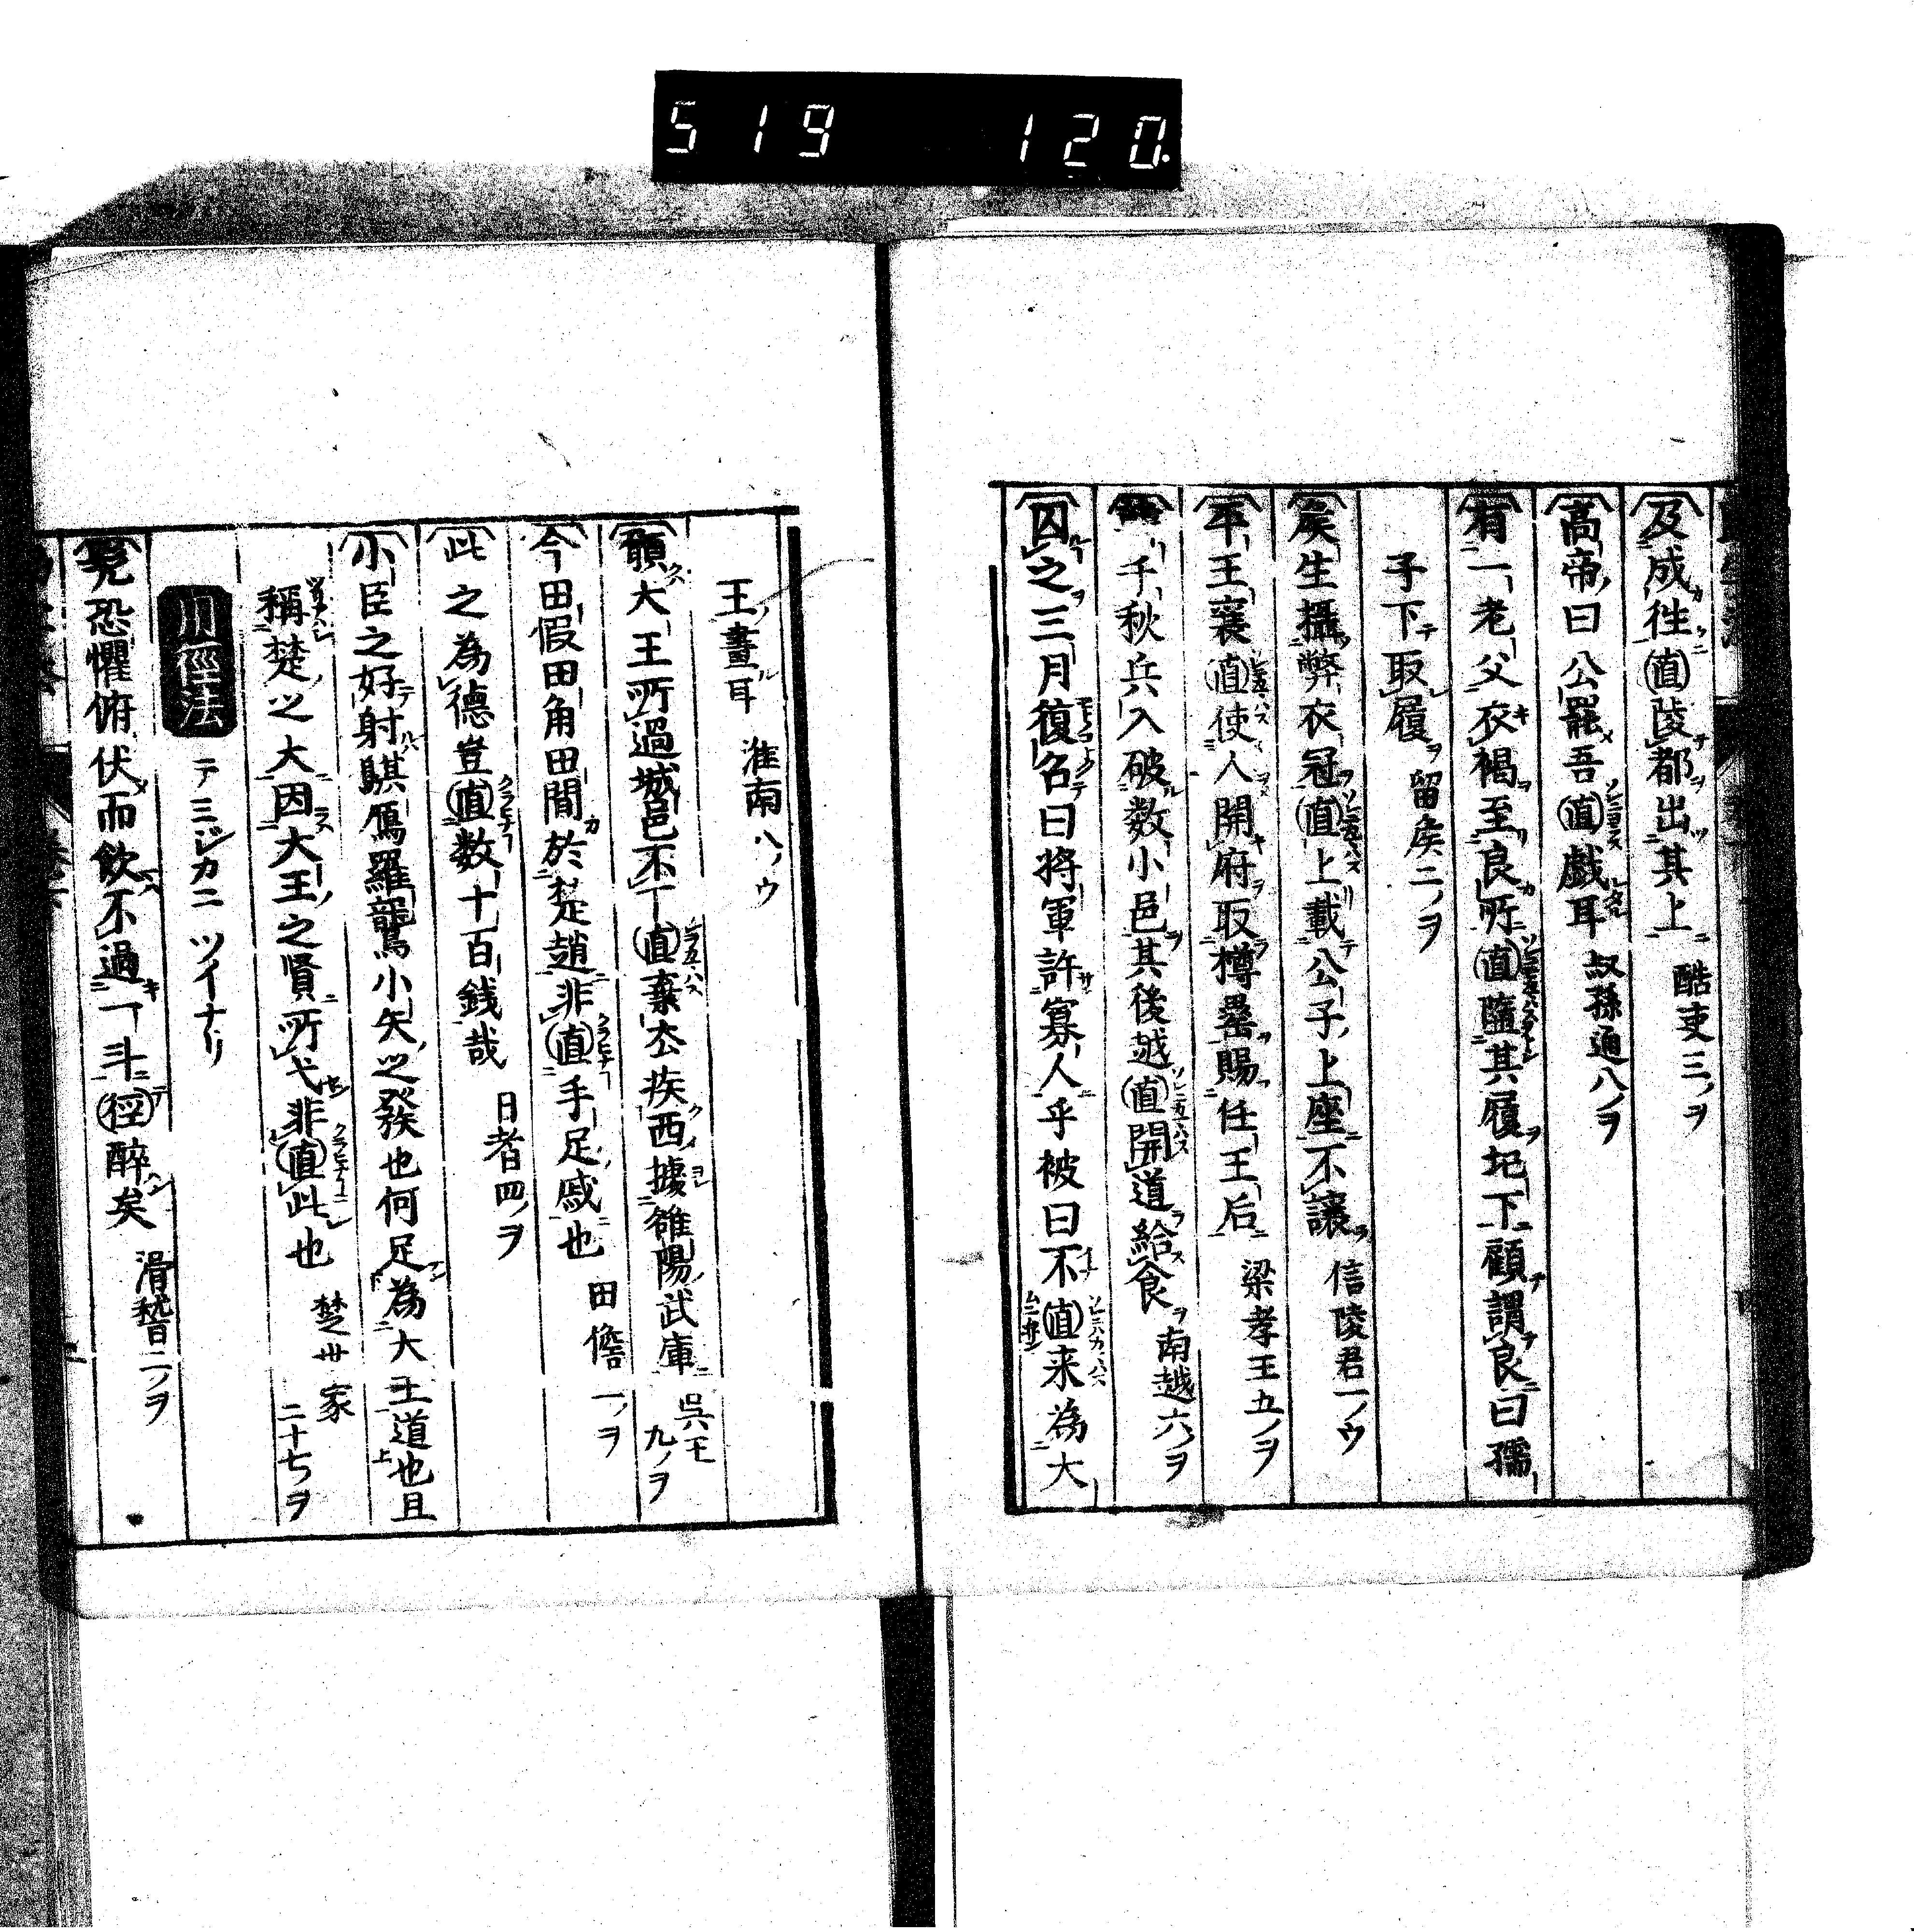 519 120
及成徃直陵都出其上 酷吏三ノヲ
髙帝曰公罷吾直戯耳 叔孫通八ノヲ
有一老父衣褐至良所直墮其履圯下顧謂良曰孺
子下取履 留矦二ノヲ
矦生攝弊衣冠直上載公子上座不讓 信陵君一ノウ
平王襄直使人開府取樽罍賜任王后 梁孝王五ノヲ
千秋兵入破数小邑其後越直開道給食 南越六ノヲ
囚之三月復召曰将軍許寡人乎被曰不直来為大
王畫耳 淮南八ノウ
願大王所過城邑不下直棄去疾西據雒陽武庫 呉王九ノヲ
今田假田角田間於楚趙非直手足戚也 田儋一ノヲ
此之為德豈直数十百銭哉 日者四ノヲ
小臣之好射騏鴈羅鸗小矢之發也何足為大王道也且
稱楚之大因大王之賢所弋非直此也 楚世家二十七ノヲ
川徑法 テミジカニ ツイナリ
髠恐懼俯伏而飲不過一斗徑醉矣 滑稽二ノヲ